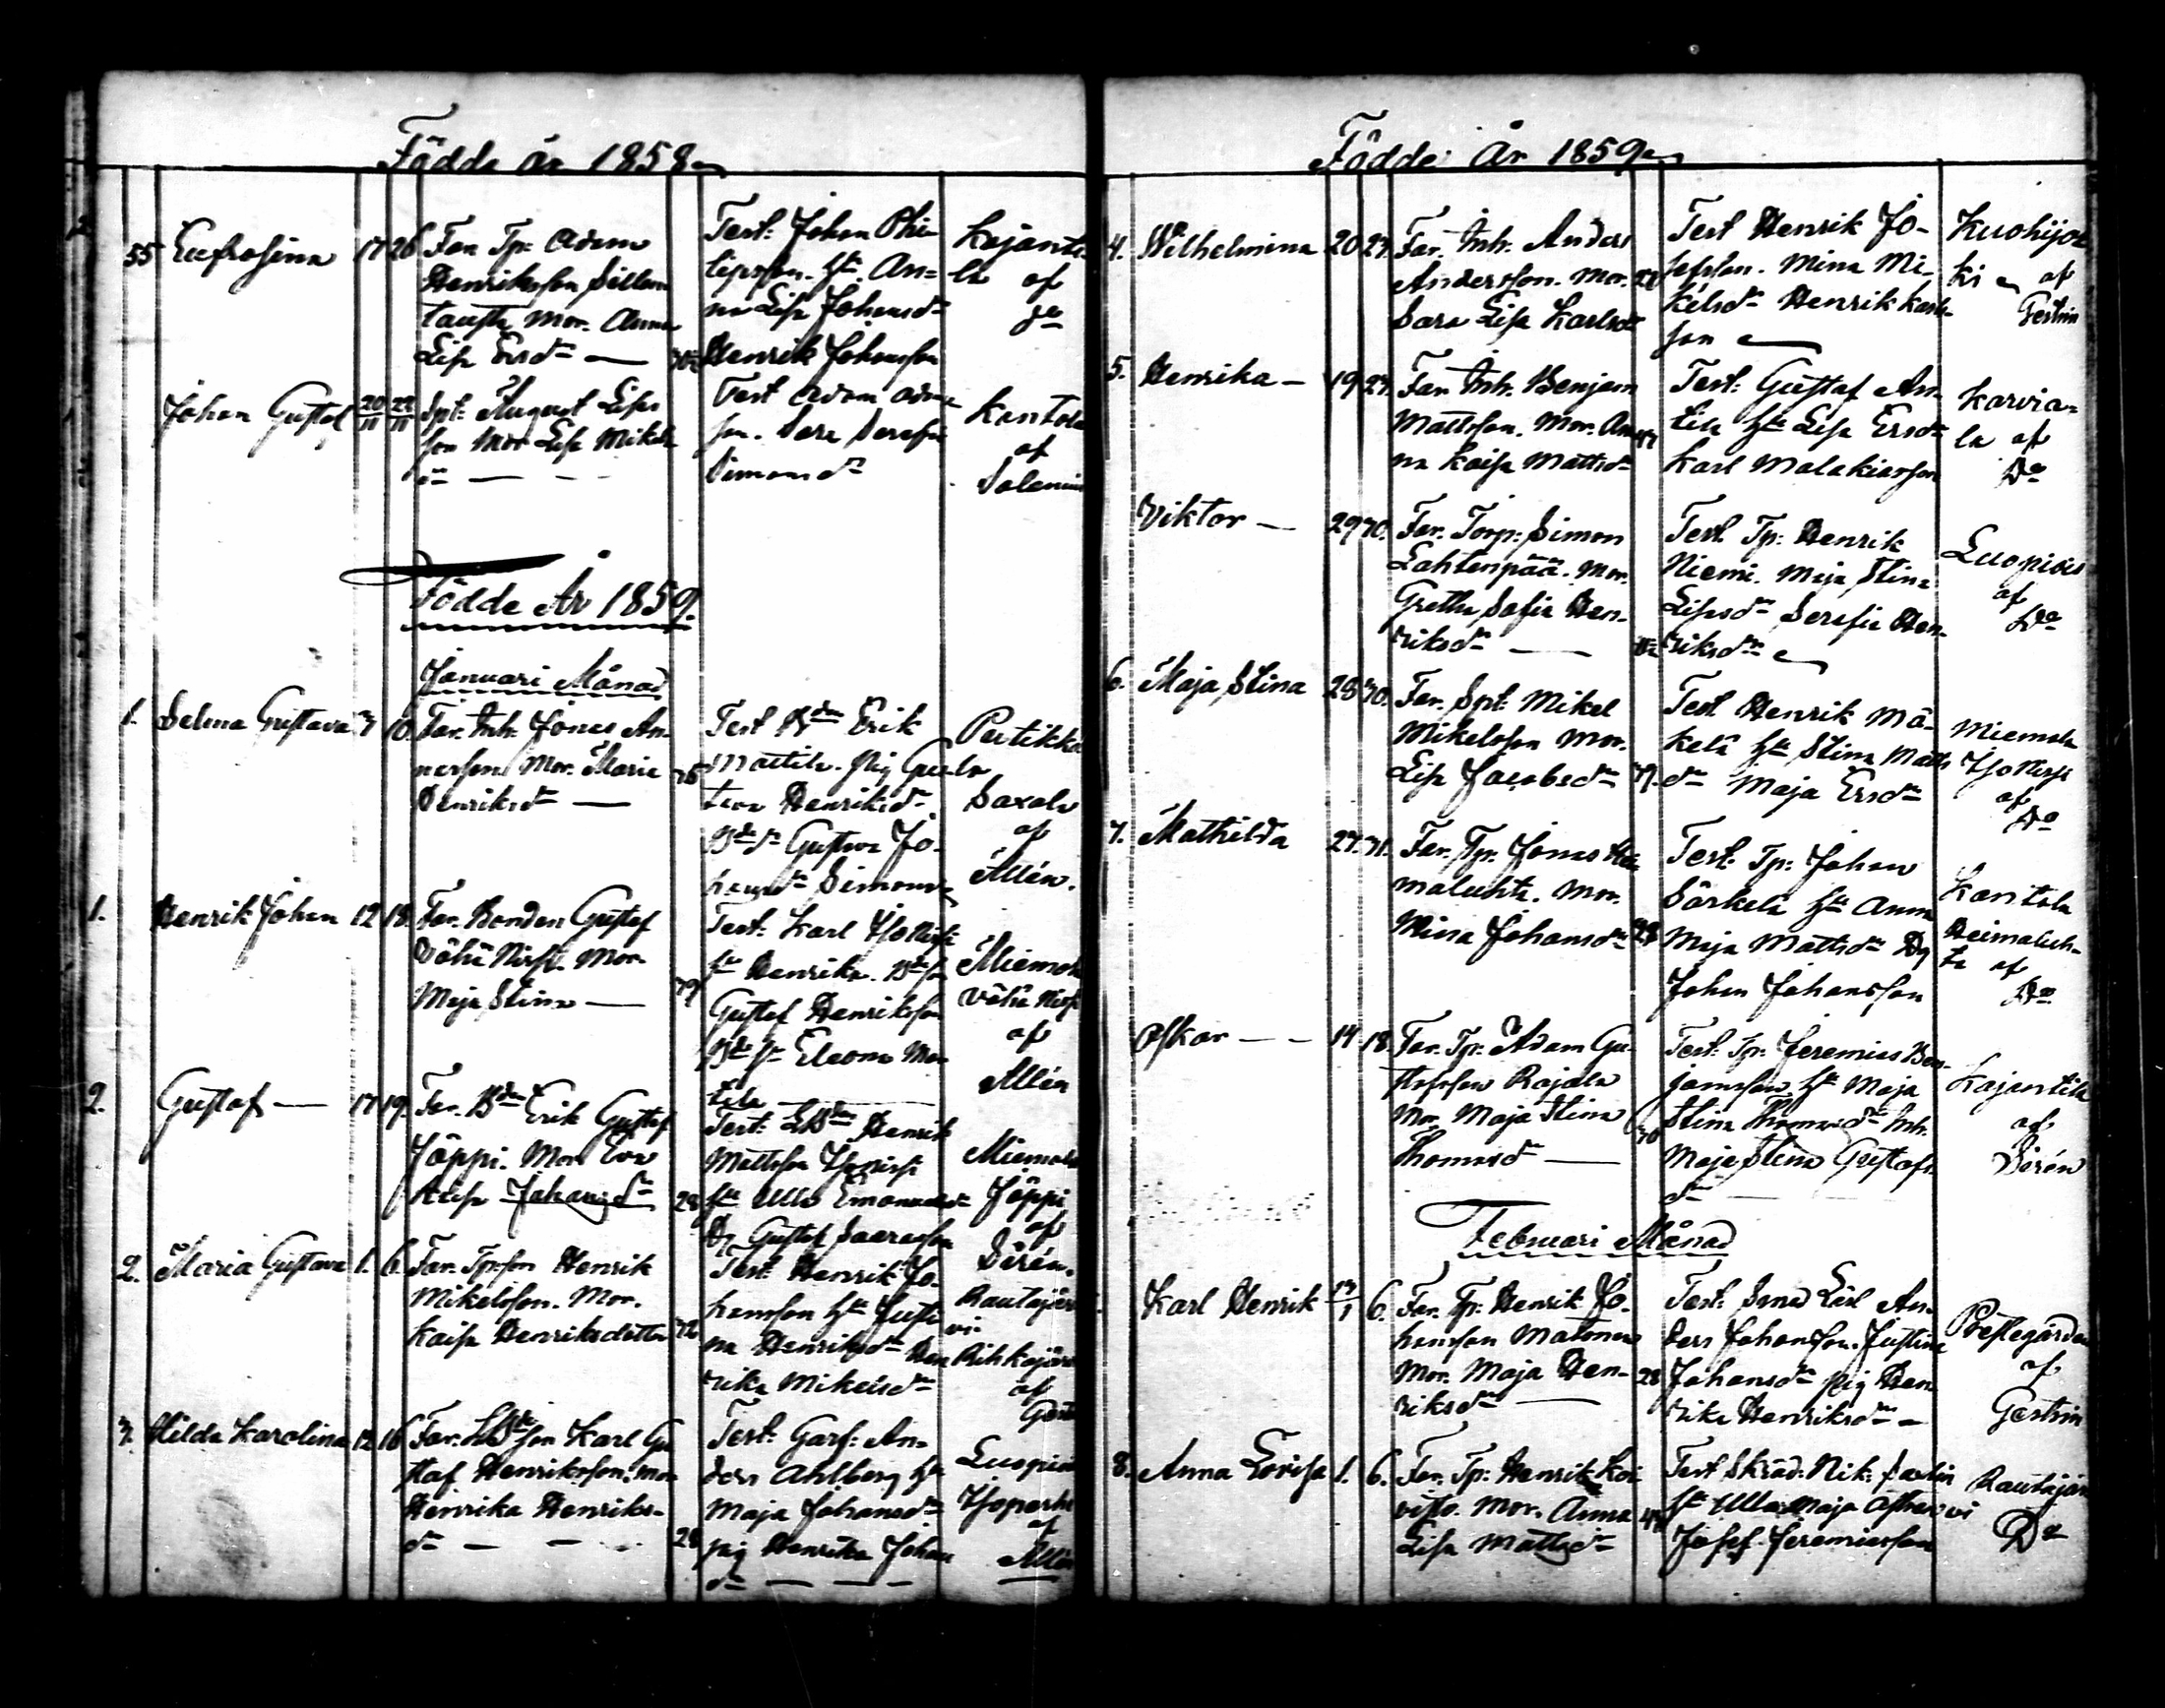 Födde år 1858
55 Eufrosina 17 26 Far Tp: Adam
Henriksson Sillan
tausta Mor. Anna
Lisa Ersdr
Test: Johan Phi-
lipsson. hu. An-
na Lisa Johansdr
Henrik Johansson
Kajanti-
la af
do
Johan Gustaf 20/11 22/11 Spt: August Lisas
son Mor Lisa Mikels
dr
Test Adam Adams
son. Sera Serafia
Simonsdr
Kantola
af
Salenius
Födde År 1859.
Januari Månad
1. Selma Gustava 7 10. Far. Inh. Jonas An-
nerson Mor. Maria
Henriksdr 36
Test Bdn Erik
Mattila. Pig Gus
tava Henriksdr.
Bdedr Gustava Jo-
hansdr Simonsdr
Pertikka
la
Saxala
af
Allén.
1. Henrik Johan 12 18. Far. Bonden Gustaf
Vähä Nirsti. Mor.
Maja Stina 39
Test: Karl Iso Nirsti
hu Henrika. Bdeson
Gustaf Henriksson
Bdehu Eleona Mat
tila
Miemola
Vähä Nirsti
af
Allén
2. Gustaf 17 19. Far. Bdn Erik Gustaf
Jöppi. Mor Eva
Kaisa Johansdr 28
Test: LBdn Henrik
Mattsson Iso Nirsti
hu Ulla Emanuelsdr
Dg Gustaf Saarasson
Miemola
Jöppi
af
Sirén.
2. Maria Gustava 1. 6. Far. Tpson Henrik
Mikelsson. Mor.
Kaisa Henriksdotter 32
Test: Henrik Jo-
hansson hu Justi
na Henriksdr Hen
rika Mikelsdr
Rautajär
vi
Rihkajärvi
af
Gestrin
3. Hilda Karolina 12 16 Far. LBdeson Karl Gu
staf Henriksson. Mor
Henrika Henriks-
dr 28
Test: Garf: An-
ders Ahlberg hu
Maja Johansdr
pig Henrika Johans
dr
Luopiois
Isoperhe
af
Allén
Födde År 1859
4. Wilhelmina 20 23. Far. Inh. Anders
Andersson. Mor. 28
Sara Lisa Karlsdr
Test Henrik Jo-
sefsson. Mina Mi-
kelsdr Henrik Karls-
son
Kuohijoki
ki af
Gestrin
5. Henrika 19 23. Far Inh. Benjam
Mattsson. Mor. An
na Kaisa Mattsdr
Test: Gustaf An-
tila hu Lisa Ersdr
Karl Malakiasson
Karvia-
la af
Do
Viktor 29 30. Far. Torp: Simon
Lahtenpää. Mor.
Gretha Sofia Hen-
riksdr
Test Tp: Henrik
Niemi. Maja Stina
Lisasdr Serafia Hen-
riksdr
Luopiois
af
Do
6. Maja Stina 28 30. Far. Spt: Mikel
Mikelsson Mor.
Lisa Jacobsdr 39.
Test Henrik Mä-
kelä hu Stina Matts
dr Maja Ersdr
Miemola
Iso Nirsti
af
Do
7. Mathilda 27. 31. Far. Tp. Jonas Hei
maluhta. Mor.
Mina Johansdr 28
Test: Tp: Johan
Särkelä hu Anna
Maja Mattsdr Dg
Johan Johansson
Kantola
Heimaluh-
ta af
Do
Oskar 14 18. Far. Tp. Adam Gu-
stafsson Rajala
Mor Maja Stina
Thomasdr 30
Test: Tp. Jeremias Ben-
jamsson hu Maja
Stina Thomasdr Inh.
Maja Stina Gustafs
dr
Kajantila
af
Sirén
Februari Månad
Karl Henrik 6. Far. Tp: Henrik Jo-
hansson Matonen
Mor. Maja Hen- 28
riksdr
Test: An-
ders Johansson. Justina
Johansdr Pig Hen
rika Henriksdr
Prestegården
af
Gestrin
8. Anna Lovisa 1. 6. Far. Tp: Henrik Koi
visto. Mor. Anna
Lisa Mattsdr
Test Skräd. Nik: Savlin
hu Ulla Maja
Josef Jeremiasson
Rautajär
vi
Do